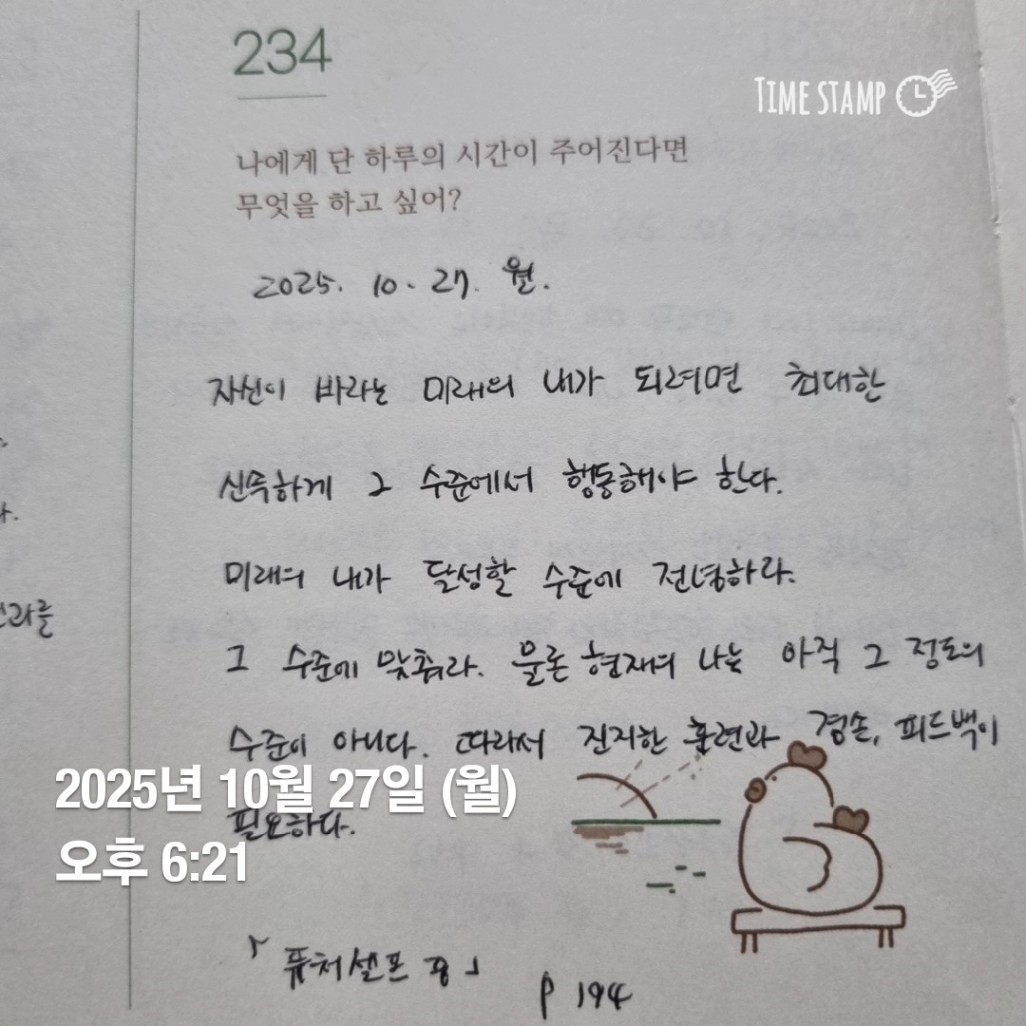 234
TIME STAMP
나에게 단 하루의 시간이 주어진다면
무엇을 하고 싶어?
2025. 10. 27. 월.
자신이 바라는 미래의 내가 되려면 최대한
신속하게 그 수준에서 행동해야 한다.
미래의 내가 달성할 수준에 전념하라.
그 수준에 맞춰라. 물론 현재의 나는 아직 그 정도의
수준이 아니다. 따라서 진지한 훈련과 겸손, 피드백이
필요하다.
2025년 10월 27일 (월)
오후 6:21
「퓨처셀프 中」
p 194
과를